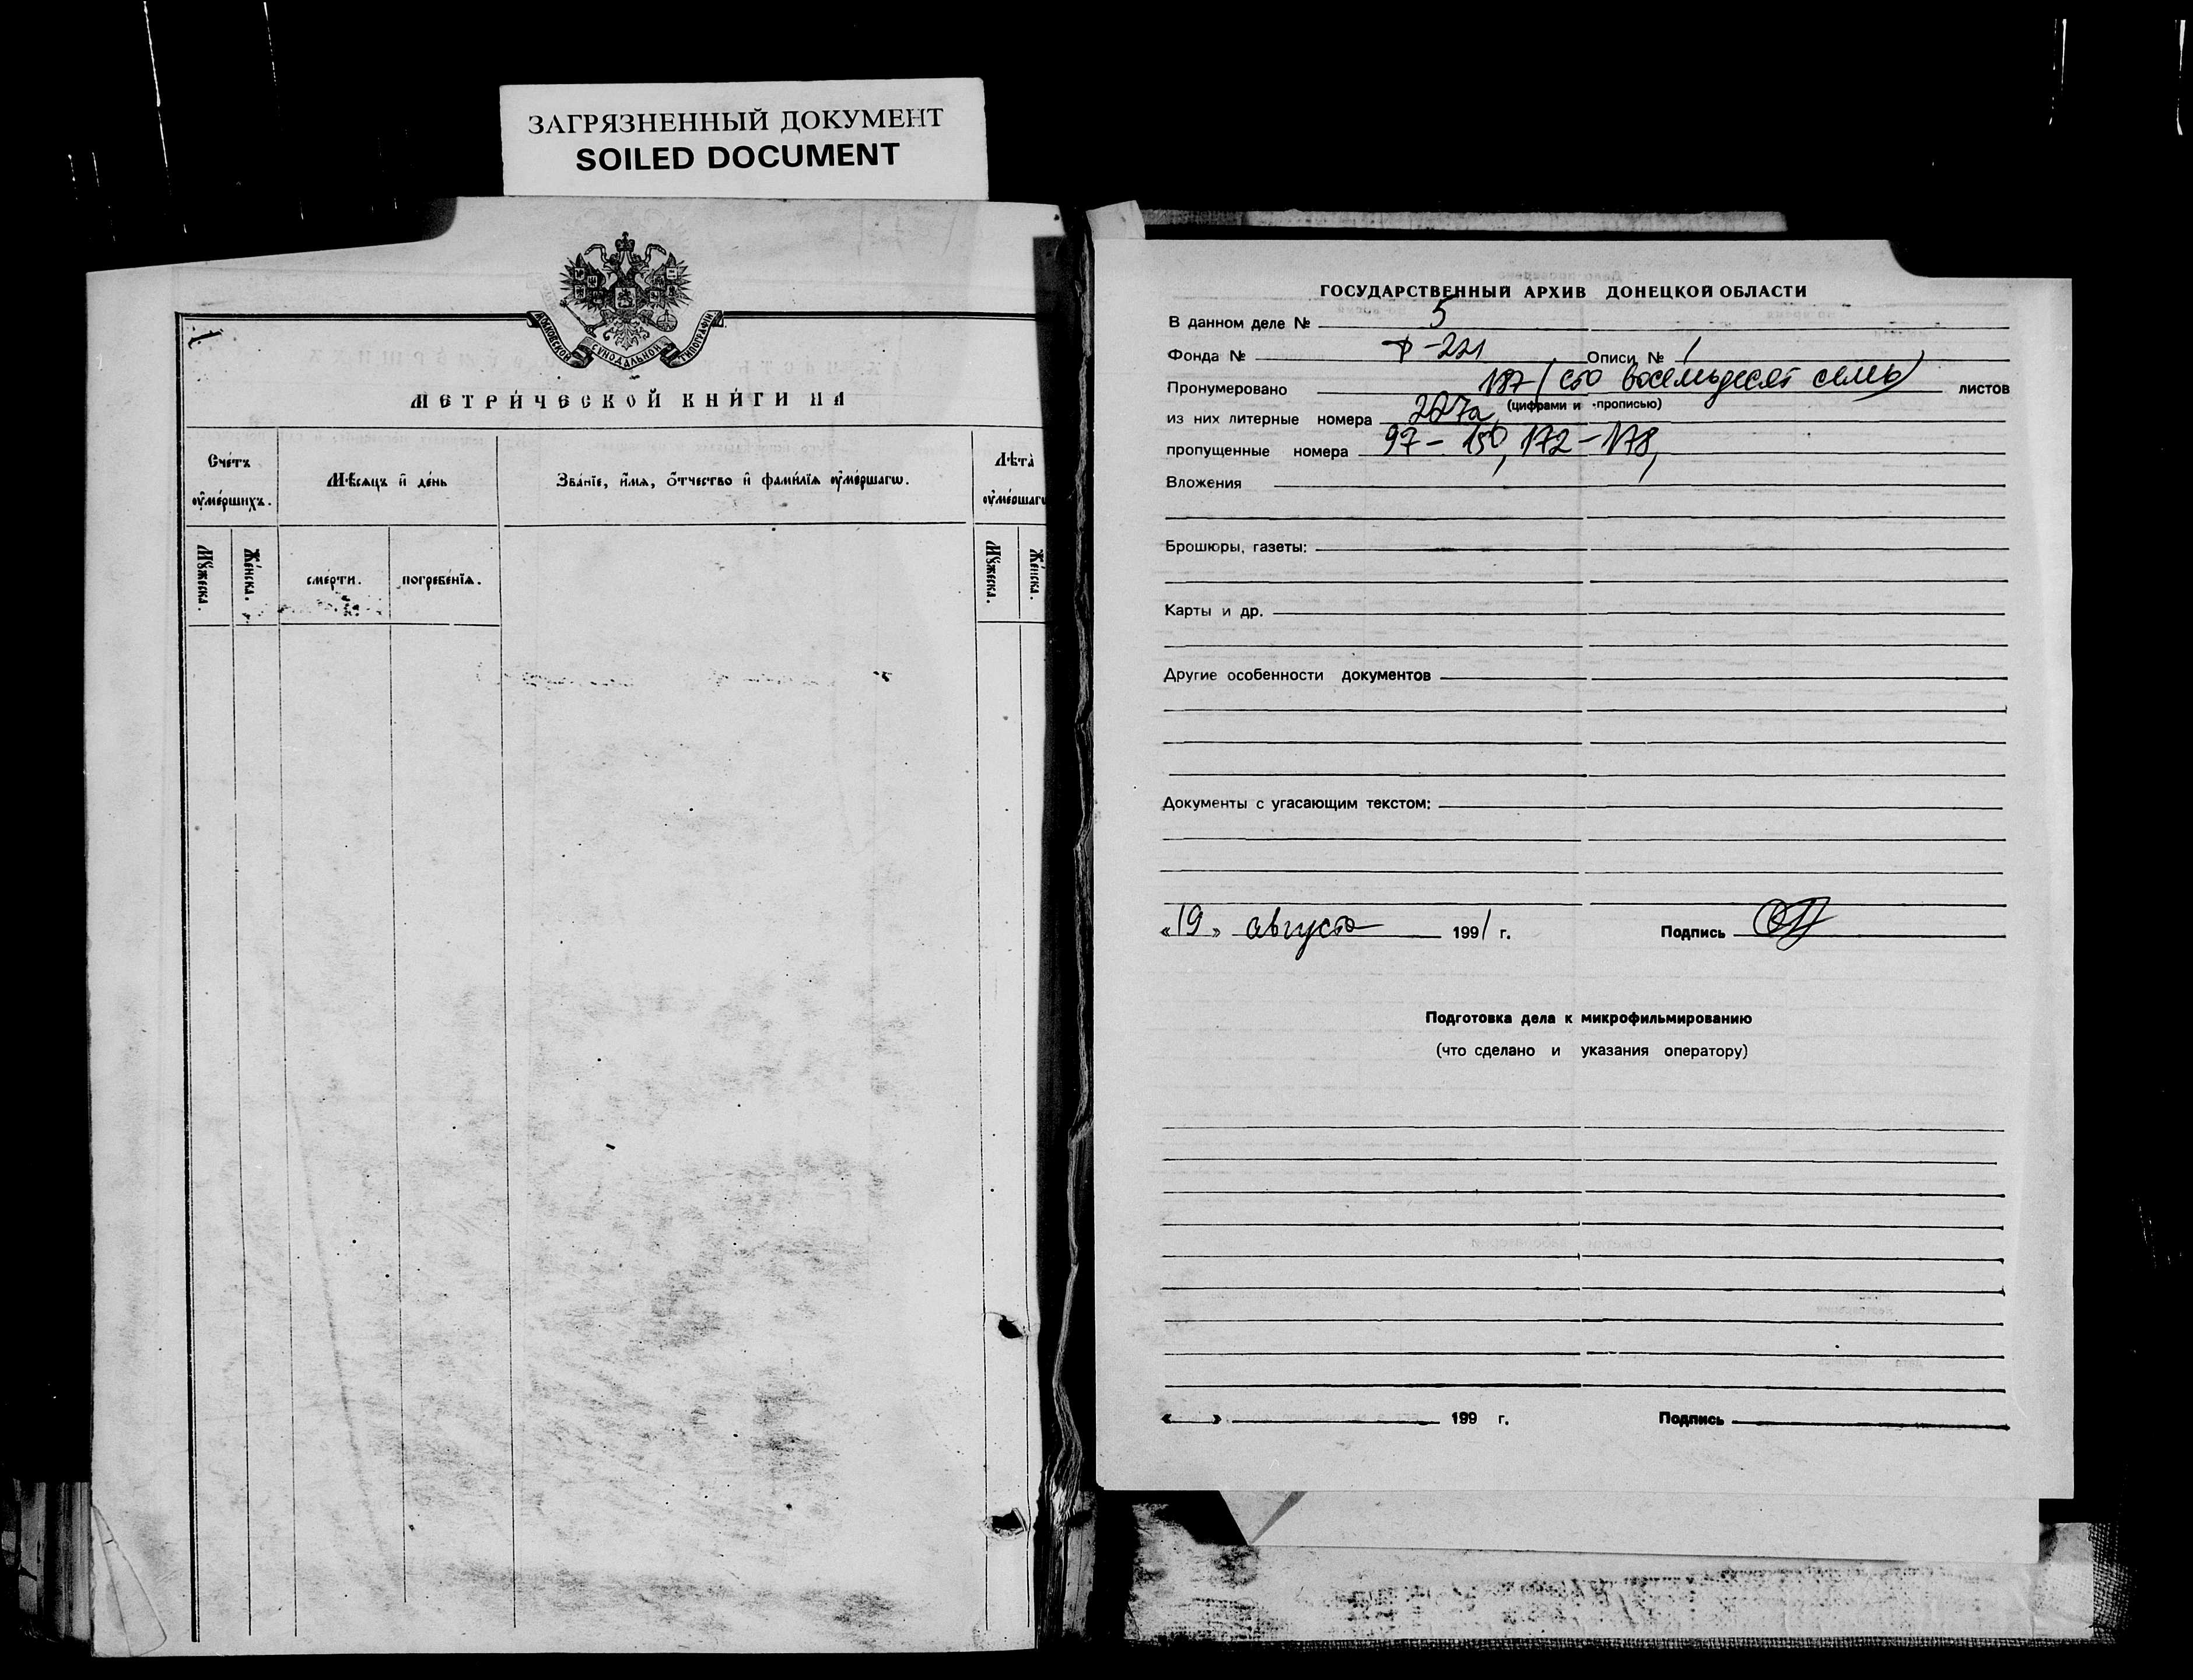 ЗАГРЯЗНЕННЫЙ ДОКУМЕНТ
SOILED DOCUMENT
МОСКОВСКОЙ СѴНОДАЛЬНОЙ ТИПОГРАФІИ
МЕТРИ́ЧЕСКОЙ КНИ́ГИ НА
Сче́тъ ᲂу҆ме́ршихъ.
Мѣ́сяцъ и҆ де́нь
Зва́нїе, и҆́мѧ, ѻ҆́тчество и҆ фами́лїѧ ᲂу҆ме́ршагѡ.
Лѣта̀ ᲂу҆ме́ршагѡ
Мꙋ́жеска.
Же́нска.
сме́рти.
погребе́нїѧ.
Мꙋ́жеска.
Же́нска.
ГОСУДАРСТВЕННЫЙ АРХИВ ДОНЕЦКОЙ ОБЛАСТИ
В данном деле № 5
Фонда № Ф-221 Описи № 1
Пронумеровано 187 (сто восемьдесят семь) листов
(цифрами и прописью)
из них литерные номера 227а
пропущенные номера 97-150, 172-178,
Вложения
Брошюры, газеты:
Карты и др.
Другие особенности документов
Документы с угасающим текстом:
«19» августа 1991 г. Подпись
Подготовка дела к микрофильмированию
(что сделано и указания оператору)
« » 199 г. Подпись